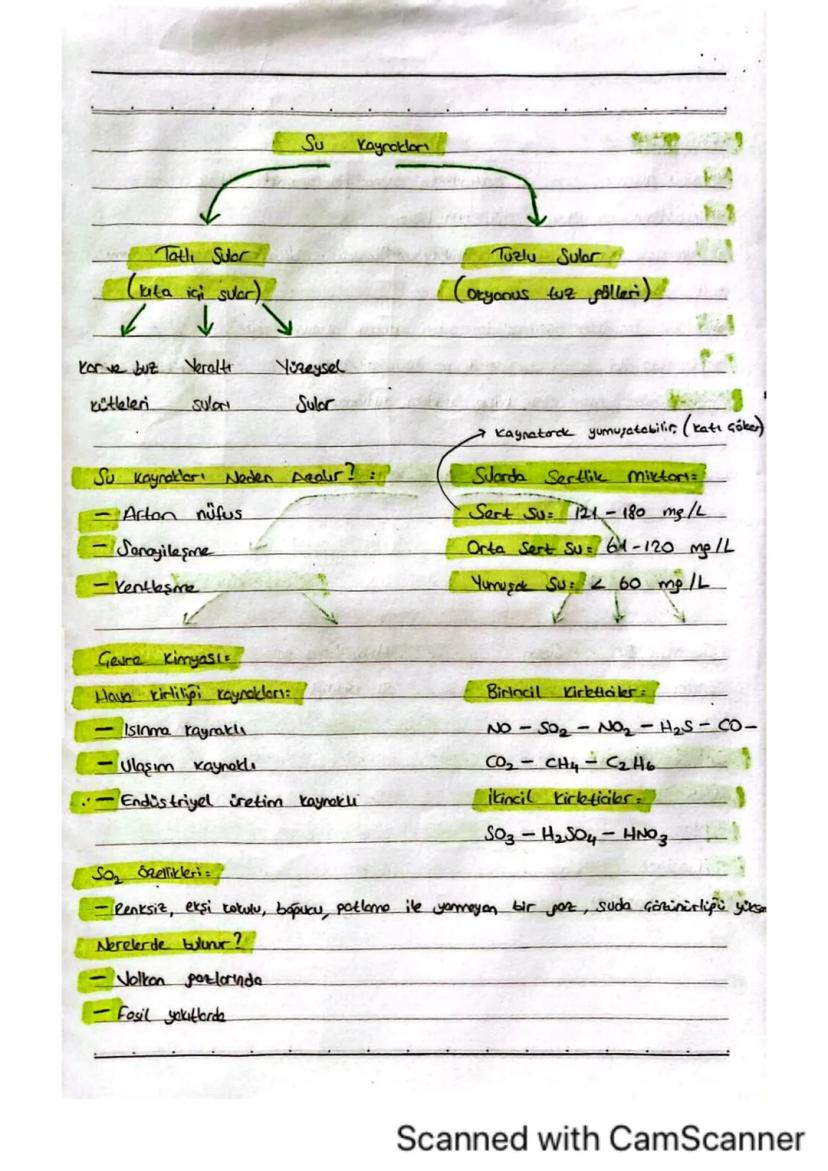 Su Kaynakları
Tatlı Sular
(kıta içi sular)
Tuzlu Sular
(Okyanus tuz gölleri)
Kar ve buz kütleleri
Yeraltı suları
Yüzeysel Sular
→ Kaynatarak yumuşatabilir (katı çöker)
Su Kaynakları Neden Azalır? :
- Artan nüfus
- Sanayileşme
- Kentleşme
Sularda Sertlik Miktarı:
Sert Su: 121 - 180 mg/L
Orta Sert Su: 61-120 mg/L
Yumuşak Su: < 60 mg/L
Çevre Kimyası:
Hava Kirliliği kaynakları:
- Isınma kaynaklı
- Ulaşım kaynaklı
- Endüstriyel üretim kaynaklı
Birincil Kirleticiler:
NO - SO₂ - NO₂ - H₂S - CO -
CO₂ - CH₄ - C₂H₆
İkincil Kirleticiler:
SO₃ - H₂SO₄ - HNO₃
SO₂ Özellikleri:
- Renksiz, ekşi kokulu, boğucu, patlama ile yanmayan bir gaz, suda çözünürlüğü
Nerelerde bulunur?
- Volkan gazlarında
- Fosil yakıtlarda
Scanned with CamScanner